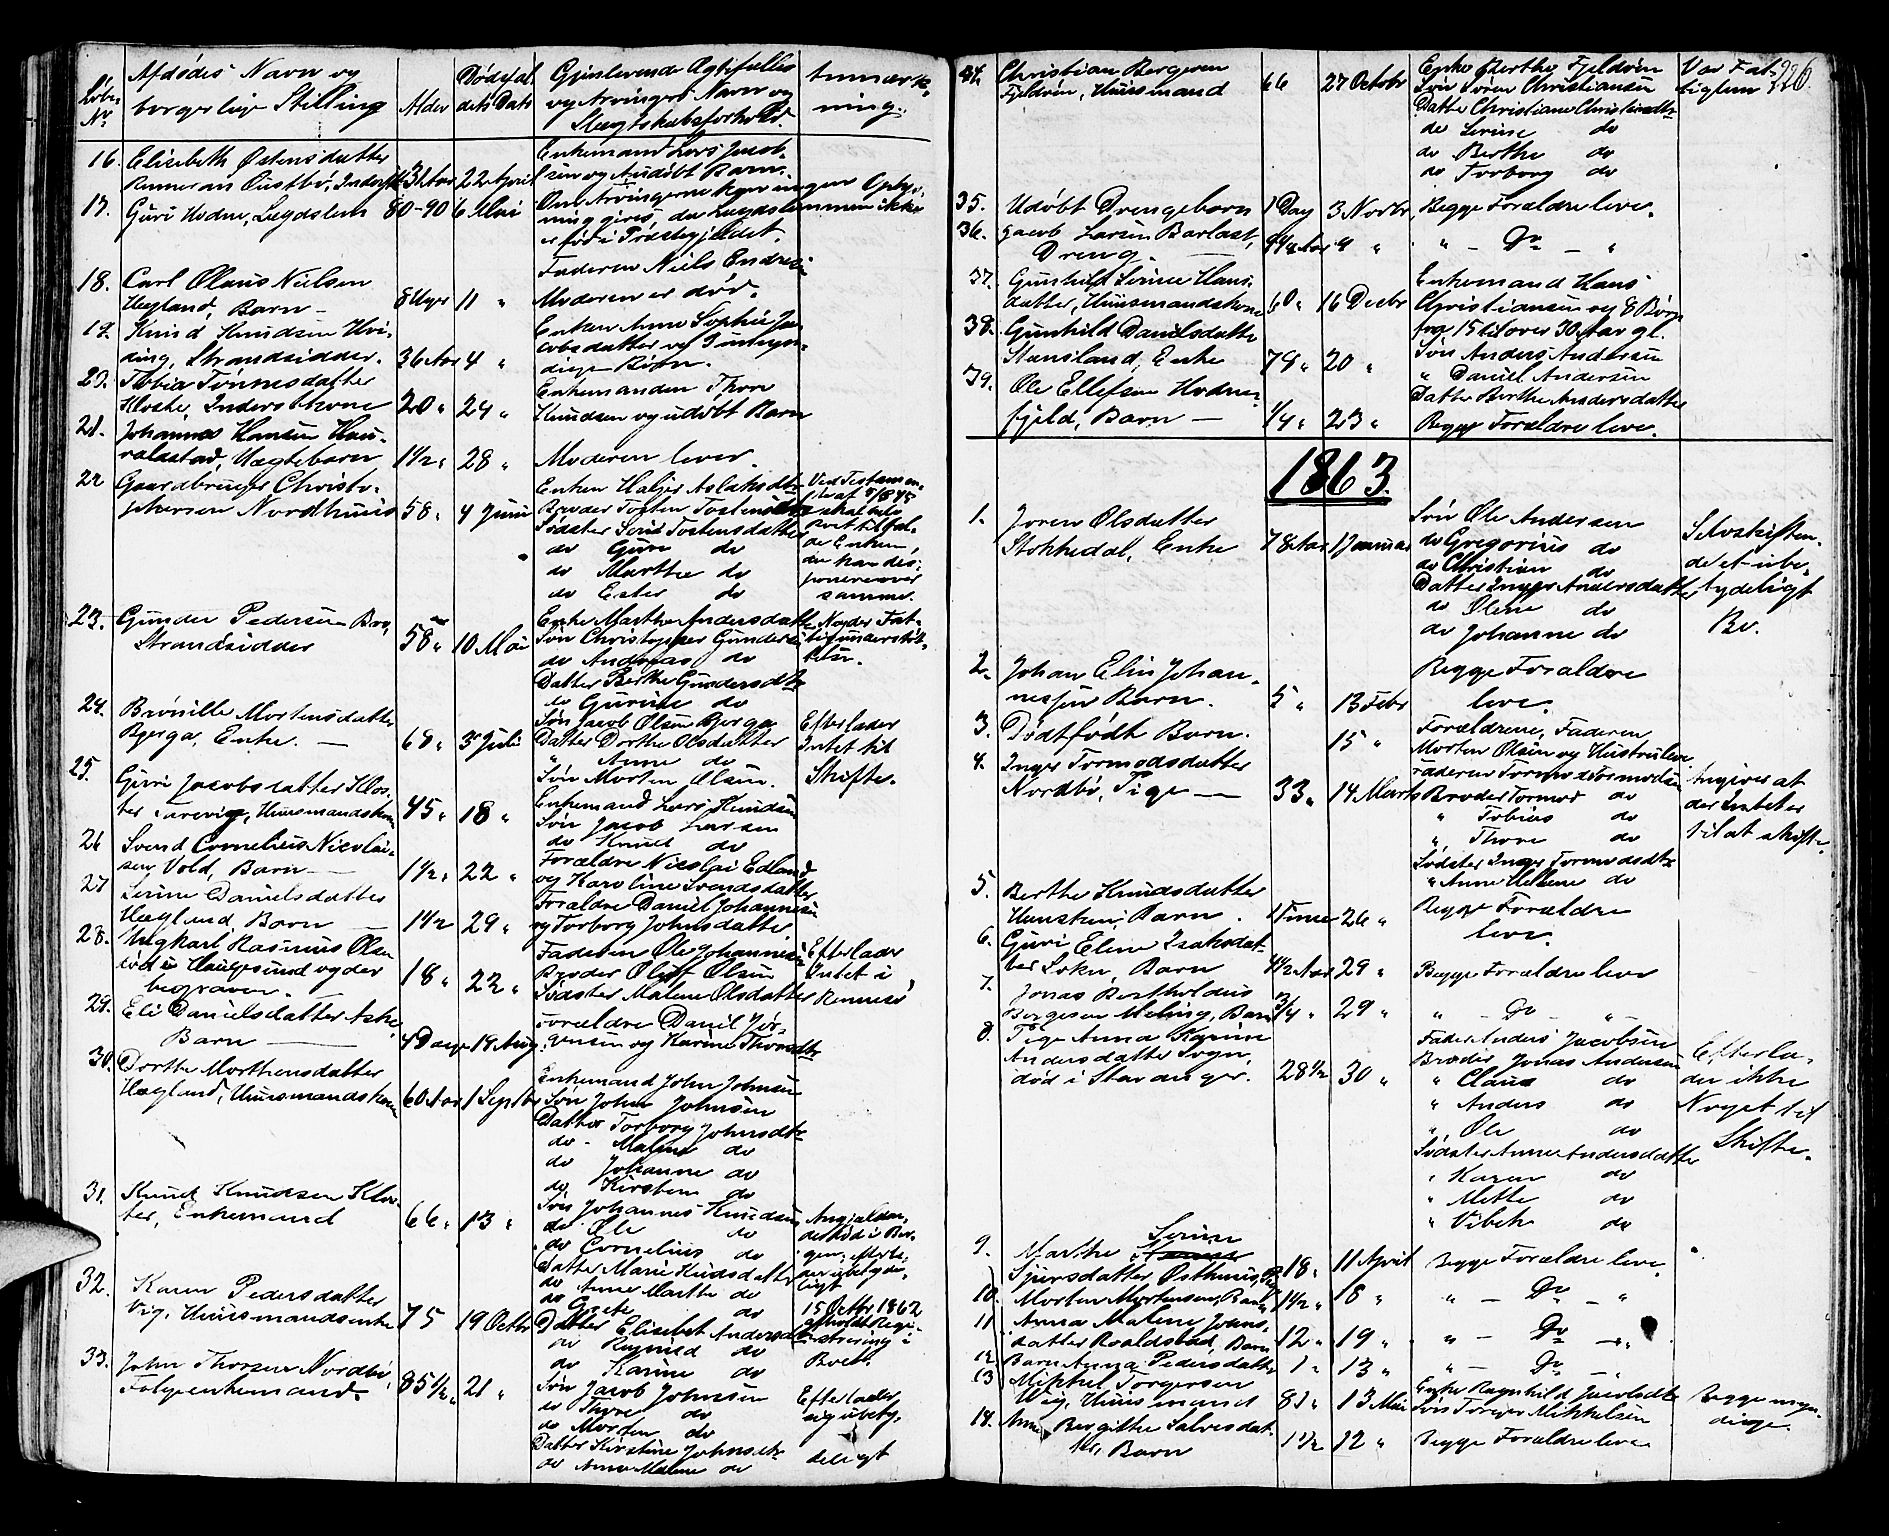 Løbe Nr
Afdødes Navn og borgerlige Stilling
Alder
Dødsfaldets Dato
Gjenlevende Ægtefælles og Arvingers Navn og Slægtskabsforhold.
Anmærkning.
16. Elisebeth Østensdatter
31 Aar 22 April
Enkemand Lars Jacobsen og Andøbt Barn.
17. Guri Hodne, Lægdslem 80-90 6 Mai
Om Arvingerne haves ingen Oplysning
da Lægdslemmen ikke
er fød i Præstegjeldet.
18. Carl Olaus Nielsen
Hegland, Barn – 8 Uger 11 "
Faderen Niels Endresen
Moderen er død.
19. Knud Knudsen Hviding, Strandsidder. 36 Aar 4 "
Enken Anne Sophie Jacobsdatter og 3 umyndige Børn.
20. Tobia Tønnesdatter
Kloster, Inderstkone 20 " 24 "
Enkemanden Thore
Knudsen og udøbt Barn
21. Johannes Hansen
Hægtebarn 1 1/2 " 28 "
Moderen lever.
22 Gaardbruger Christophersen Nordhuus 58 " 4 Juni
Enken Helger Aslaksdtr
Broder Tosten Tostensen
Sødster Tostensdatter
do Guri do
do Marthe do
do Ester do
Ved Testamente af
skal hele
Boet tilfalde Enken,
der kan disponere over
samme.
23. Gunder Pedersen Bø,
Strandsidder 58 " 10 Mai
Enke Marthe Andersdatter
Søn Christopher Gundersen
do Andreas do
Datter Berthe Gundersdtr
do Gurine do
Nyder Fattigunderstøttelse.
24. Brønille Mortensdatter
Bjerga, Enke. – 68 " 3 Juli
Søn Jacob Olsen Bjerga
Datter Dorthe Olsdatter
" Anne do
Søn Morten Olsen.
Efterlader
Intet til
Skifte.
25. Guri Jacobsdatter Kloster
Huusmandskone 45 " 18 "
Enkemand Lars Knudsen
Søn Jacob Larsen
do Knud do
26 Svend Cornelius Nicolaisen Vold, Barn – 1 1/2 " 22 "
Forældre Nicolai Edland
og Karoline Svendsdatter
27 Serine Danielsdatter
Hægland, Barn 1 1/2 29 "
Forældre Daniel Johannesen
og Torborg Johnsdatter
28. Ungkarl Rasmus Olsen
død i Haugesund og der
begraven. 18 " 22 "
Faderen Ole Johannesen
Broder Oluf Olsen
Sødster Malene Olsdatter
Efterlader
Intet i
Rennesø
29. Eli Danielsdatter Aske,
Barn – 4 Dage 19 Aug.
Forældre Daniel Jørgensen og Karine Thorsdtr
30. Dorthe Morthensdatter
Hægland, Huusmandskone 60 Aar 1 Septbr
Enkemand John Johnsen
Søn John Johnsen
Datter Torborg Johnsdtr
do Malene do
do Johanne do
do Kirsten do
31. Knud Knudsen Kloster, Enkemand 66 " 13 "
Søn Johannes Knudsen
do Ole do
do Cornelius do
Datter Marie Knudsdatter
do Anne Marthe do
do Grete do
32. Karen Pedersdatter
Vig, Huusmandsenke 75 19 Octbr
Datter Elisebet Andersdatter
do Ragnild do
do Karine do
15 Octbr 1862
afholdt Registrering i
Boet.
33. John Thorsen Nordbø,
Føderenkemand. 85 1/2 " 21 "
Søn Jacob Johnsen
do Thore do
do Morten do
Datter Kirstine Johnsdtr
do Anne Malene do
Efterlader
sig ubetydeligt
226.
34. Christian Børgesen
Fjeldøen, Huusmand 66 27 Octobr
Enke Berthe Fjeldøen
Søn Søren Christiansen
Datter Christiane Christiansdtr
do Serine do
do Berthe do
do Torborg do
Var Fattiglem
35. Udøbt Drengebarn 1 Day 3 Novbr
Begge Forældre leve.
36. Jacob Larsen Barlast,
Dreng. – 9 "
" – Do – "
37. Gunhild Serine Hansdatter, Huusmandskone 50 " 16 Decbr
Enkemand Hans
Christiansen og 8 Børn
fra 15 til over 30 Aar gl.
38. Gunhild Danielsdatter
Stensland, Enke 79 " 20 "
Søn Anders Andersen
" Daniel Andersen
Datter Berthe Andersdatter
39. Ole Ellefsen Hodnefjeld, Barn – 1/4 " 23 "
Begge Forældre leve.
1863.
1. Joren Olsdatter
Stokkedal, Enke 78 Aar 1 Januar
Søn Ole Andersen
do Gregorius do
do Christian do
Datter Inger Andersdatter
do Oline do
do Johanne do
Selvskiftende et ubetydeligt
Bo.
2. Johan Elin Johannesen Barn. 5 " 13 Febr
Begge Forældre
leve.
3. Dødtfødt Barn. 15 "
Forældrene, Faderen
Morten Olsen og Hustru leve
4. Inger Tormodsdatter
Nordbø, Pige – 33 " 14 Marts
Faderen Tormod Tormodsen
Broder Tormod do
" Tobias do
" Thore do
Sødster Inger Tormodsdtr
" Anne Helene do
Angives at
der Intet er
til at skifte.
5. Berthe Knudsdatter
Barn. 1 Time 26 "
Begge Forældre
leve.
6. Guri Eline Isaksdatter Sokn, Barn 4 1/2 Aar 29 "
Begge Forældre leve
7. Jonas Bertholdus
Børgesen Meling, Barn 3/4 " 29 "
" – Do – " –
8. Pige Anna Karine
Andersdatter Sogn,
død i Stavanger. 28 1/2 30 "
Fader Anders Jacobsen
Broder Jonas Andersen
" Claus do
" Anders do
" Ole do
Sødster Anne Andersdatter
" Karen do
" Mette do
" Vibeke do
Efterlader ikke
Noget til
Skifte.
9. Marthe Serine
Sjursdatter Østhuus, 18 " 11 April
Begge Forældre leve.
10. Morten Mortensen, Barn 1 1/2 " 18 "
" – Do – "
11 Anna Malene Jonsdatter Roaldstad, Barn 12 " 19 "
" – Do – "
12 Barn Anna Pedersdatter 1 " 13 "
" – Do – "
13 Mikkel Torgersen
Wig, Huusmand 81 " 13 Mai
Enke Ragnhild Jacobsdtr
Søn Torger Mikkelsen
Begge myndige.
14. Anne Bergitte Salvesdatter, Barn 1 1/2 12 "
Begge Forældre leve